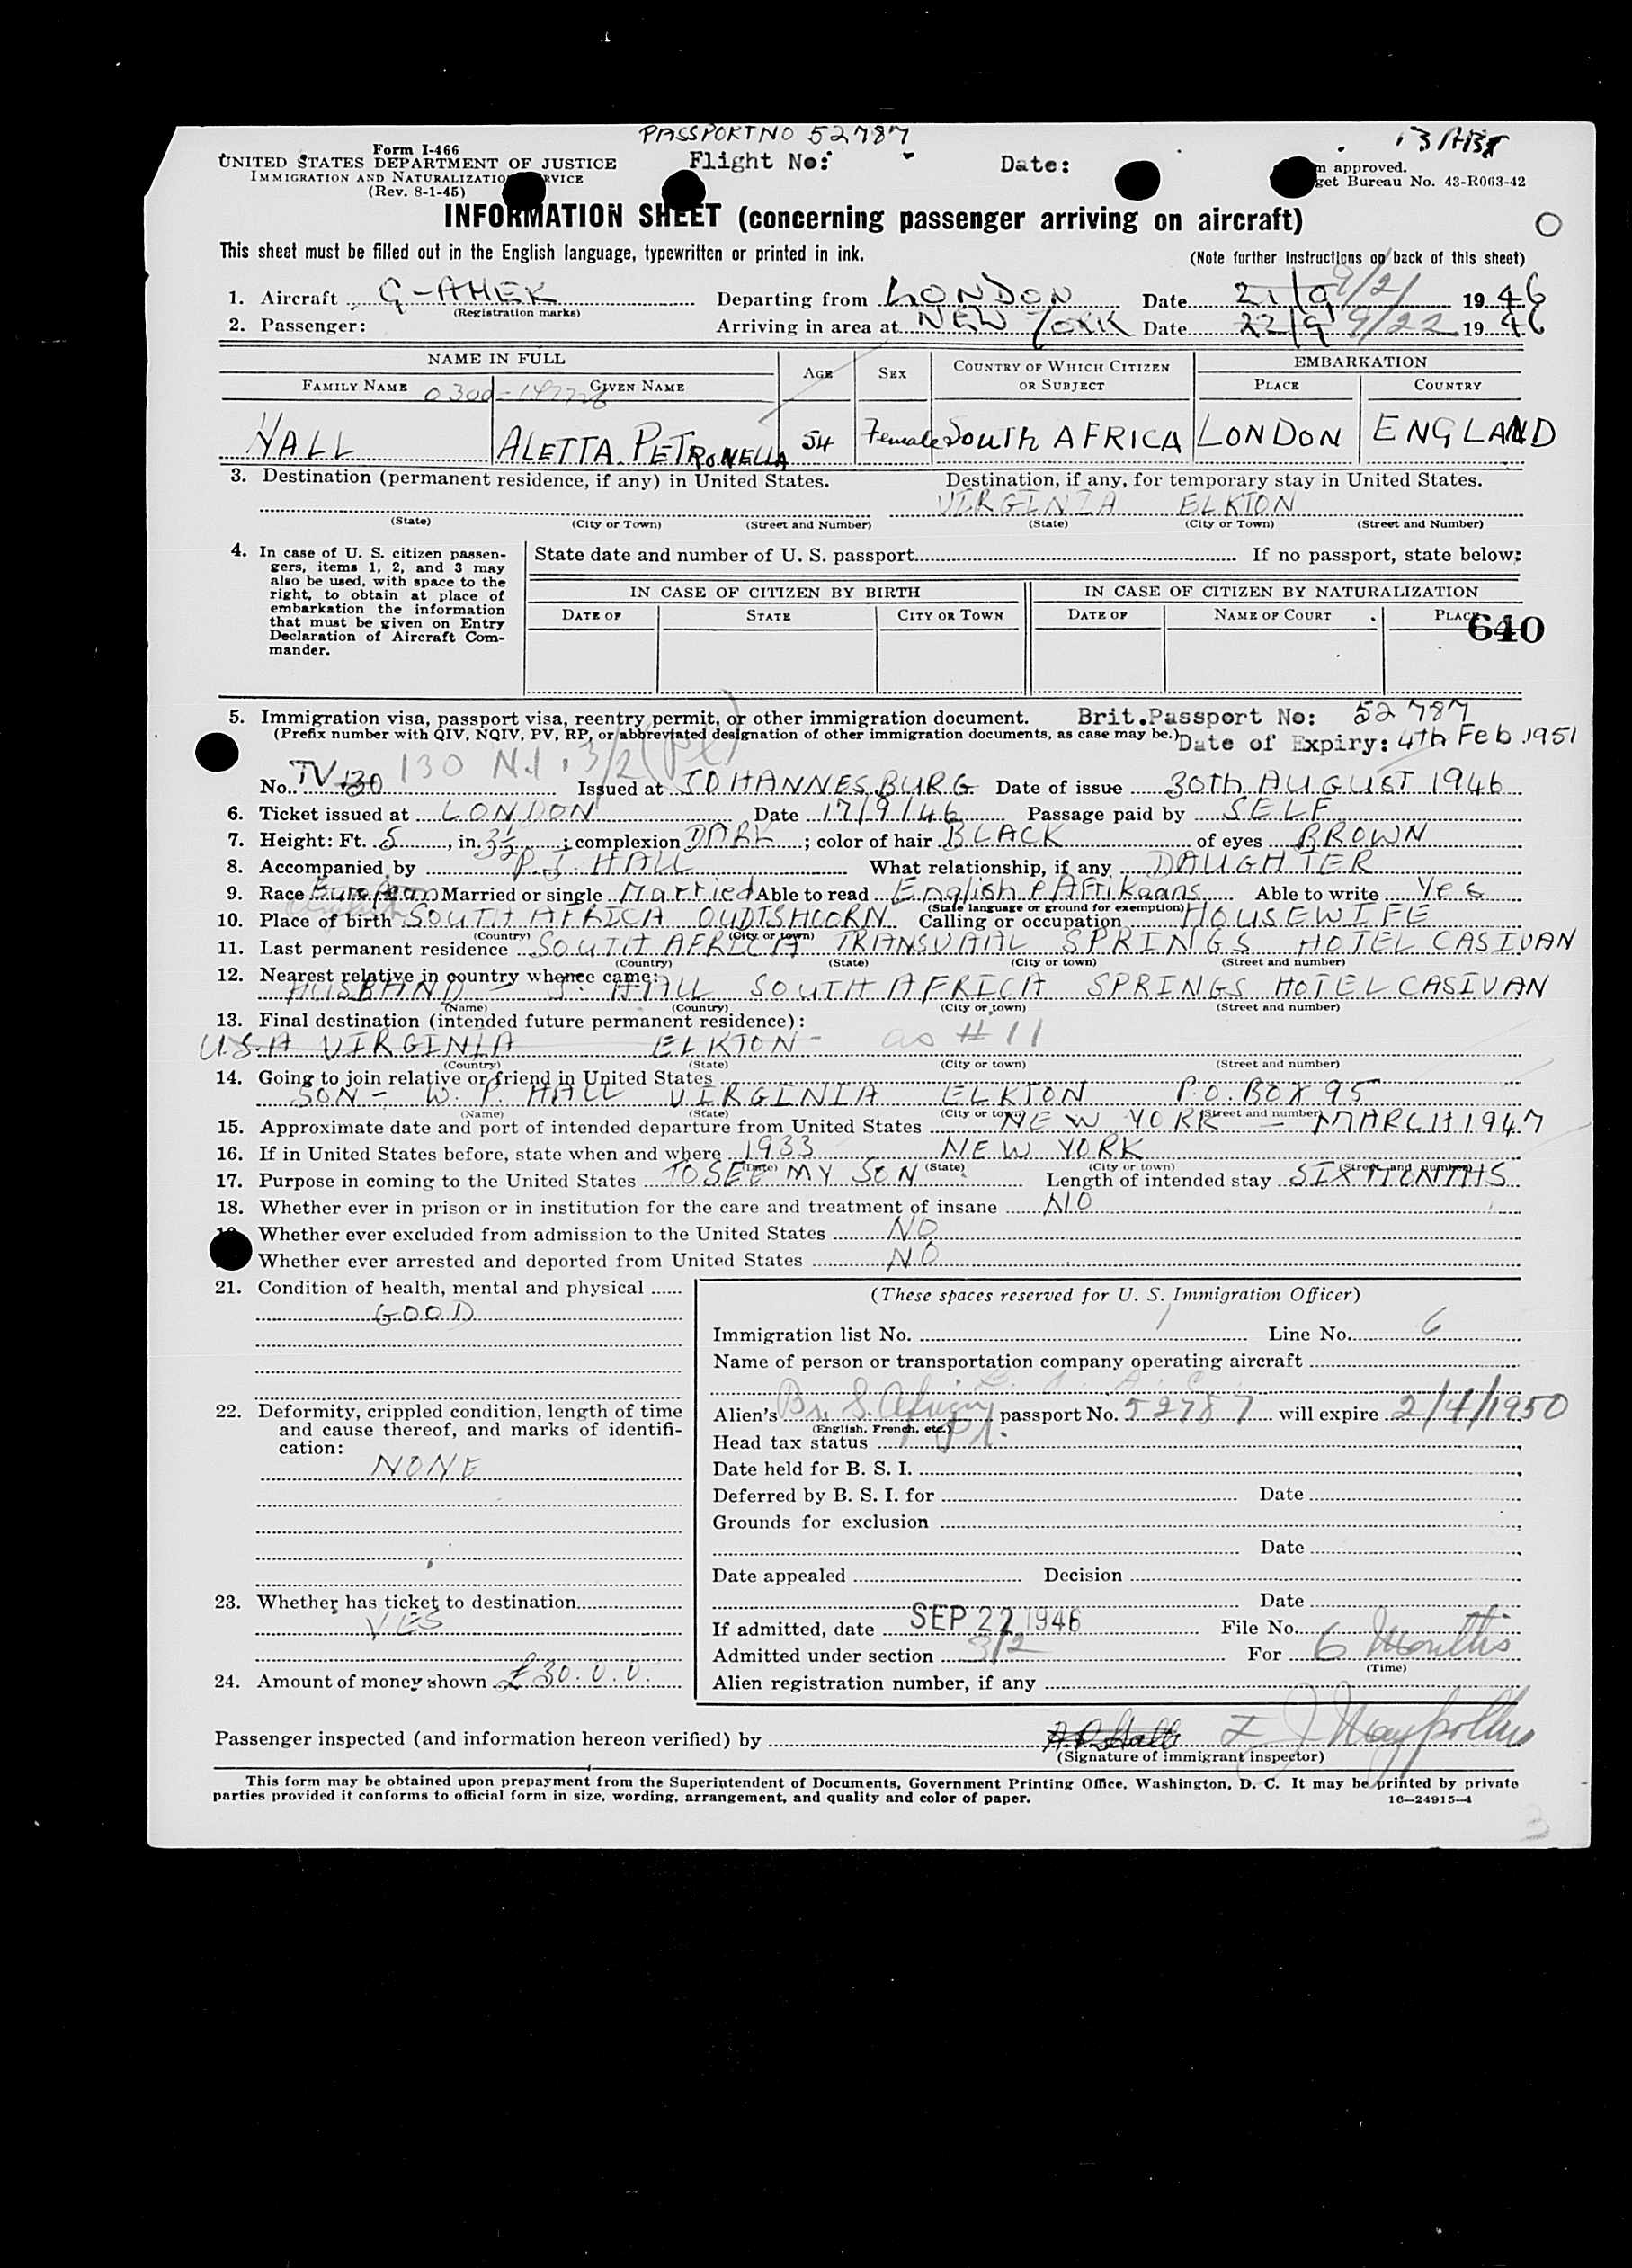 PASSPORT NO 52787
Form I-466
UNITED STATES DEPARTMENT OF JUSTICE
Flight No:
Date:
IMMIGRATION AND NATURALIZATION SERVICE
m approved.
(Rev. 8-1-45)
get Bureau No. 43-R063-42
INFORMATION SHEET (concerning passenger arriving on aircraft)
This sheet must be filled out in the English language, typewritten or printed in ink.
(Note further instructions on back of this sheet)
1. Aircraft G-AHEK Departing from LONDON Date 21/9 9/21 1946
(Registration marks)
2. Passenger: Arriving in area at NEW YORK Date 22/9 9/22 1946
NAME IN FULL AGE SEX COUNTRY OF WHICH CITIZEN OR SUBJECT EMBARKATION
FAMILY NAME GIVEN NAME PLACE COUNTRY
HALL ALETTA PETRONELLA 54 Female South AFRICA LONDON ENGLAND
3. Destination (permanent residence, if any) in United States. Destination, if any, for temporary stay in United States.
VIRGINIA ELKTON
(State) (City or Town) (Street and Number) (State) (City or Town) (Street and Number)
4. In case of U. S. citizen passen-
gers, items 1, 2, and 3 may
also be used, with space to the
right, to obtain at place of
embarkation the information
that must be given on Entry
Declaration of Aircraft Com-
mander.
State date and number of U. S. passport If no passport, state below:
IN CASE OF CITIZEN BY BIRTH IN CASE OF CITIZEN BY NATURALIZATION
DATE OF STATE CITY OR TOWN DATE OF NAME OF COURT PLACE
640
5. Immigration visa, passport visa, reentry permit, or other immigration document. Brit.Passport No: 52787
(Prefix number with QIV, NQIV, PV, RP, or abbreviated designation of other immigration documents, as case may be.) Date of Expiry: 4th Feb 1951
130 N.I. 3/2
No. TV 130 Issued at JOHANNESBURG Date of issue 30th AUGUST 1946
6. Ticket issued at LONDON Date 17/9/46 Passage paid by SELF
7. Height: Ft. 5, in. 3½; complexion DARK; color of hair BLACK of eyes BROWN
8. Accompanied by P.J. HALL What relationship, if any DAUGHTER
9. Race European Married or single Married Able to read English & Afrikaans Able to write Yes
(State language or ground for exemption)
10. Place of birth SOUTH AFRICA OUDTSHOORN Calling or occupation HOUSEWIFE
(Country) (City or town)
11. Last permanent residence SOUTH AFRICA TRANSVAAL SPRINGS HOTEL CASIVAN
(Country) (State) (City or town) (Street and number)
12. Nearest relative in country whence came:
HUSBAND - J. HALL SOUTH AFRICA SPRINGS HOTEL CASIVAN
(Name) (Country) (City or town) (Street and number)
13. Final destination (intended future permanent residence):
U.S.A VIRGINIA ELKTON - as # 11
(Country) (State) (City or town) (Street and number)
14. Going to join relative or friend in United States
SON - W. P. HALL VIRGINIA ELKTON P.O. BOX 95
(Name) (State) (City or town) (Street and number)
15. Approximate date and port of intended departure from United States NEW YORK - MARCH 1947
16. If in United States before, state when and where 1933 NEW YORK
(Date) (State) (City or town) (Street and number)
17. Purpose in coming to the United States TO SEE MY SON Length of intended stay SIX MONTHS
18. Whether ever in prison or in institution for the care and treatment of insane NO
Whether ever excluded from admission to the United States NO
Whether ever arrested and deported from United States NO
21. Condition of health, mental and physical
GOOD
22. Deformity, crippled condition, length of time
and cause thereof, and marks of identifi-
cation:
NONE
23. Whether has ticket to destination
YES
24. Amount of money shown £30.0.0.
(These spaces reserved for U. S. Immigration Officer)
Immigration list No. 1 Line No. 6
Name of person or transportation company operating aircraft
Alien's Br. S. African passport No. 52787 will expire 2/4/1950
(English, French, etc.)
Head tax status
Date held for B. S. I.
Deferred by B. S. I. for Date
Grounds for exclusion
Date
Date appealed Decision
Date
If admitted, date SEP 22 1946 File No.
Admitted under section 3/2 For 6 Months
(Time)
Alien registration number, if any
Passenger inspected (and information hereon verified) by
(Signature of immigrant inspector)
This form may be obtained upon prepayment from the Superintendent of Documents, Government Printing Office, Washington, D. C. It may be printed by private
parties provided it conforms to official form in size, wording, arrangement, and quality and color of paper.
16—24915-4
3